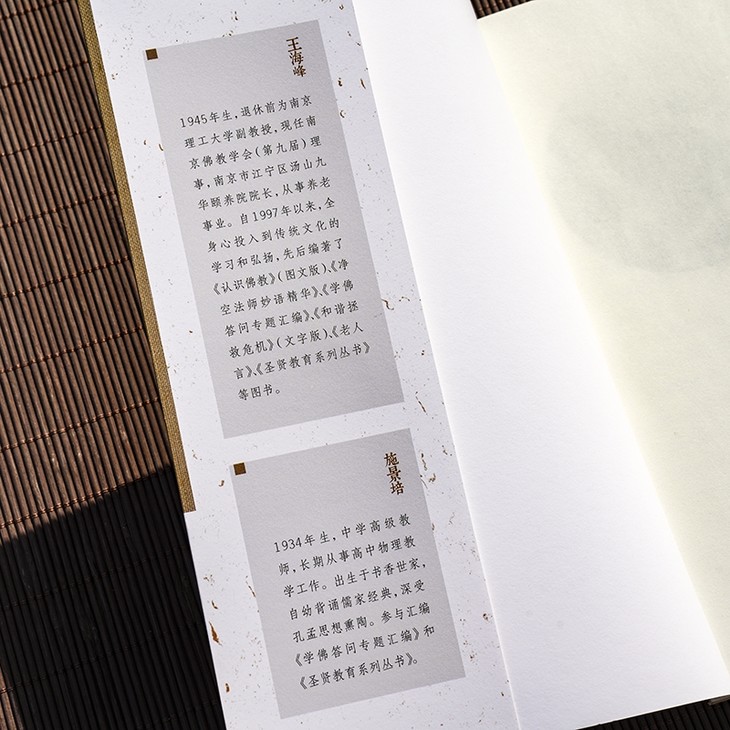 王海峰
1945年生，退休前为南京
理工大学副教授，现任南
京佛教学会（第九届）理
事，南京市江宁区汤山九
华颐养院院长，从事养老
事业。自1997年以来，全
身心投入到传统文化的
学习和弘扬，先后编著了
《认识佛教》（图文版）、《净
空法师妙语精华》、《学佛
答问专题汇编》、《和谐拯
救危机》（文字版）、《老人
言》、《圣贤教育系列丛书》
等图书。
施景培
1934年生，中学高级教
师，长期从事高中物理教
学工作。出生于书香世家，
自幼背诵儒家经典，深受
孔孟思想熏陶。参与汇编
《学佛答问专题汇编》和
《圣贤教育系列丛书》。